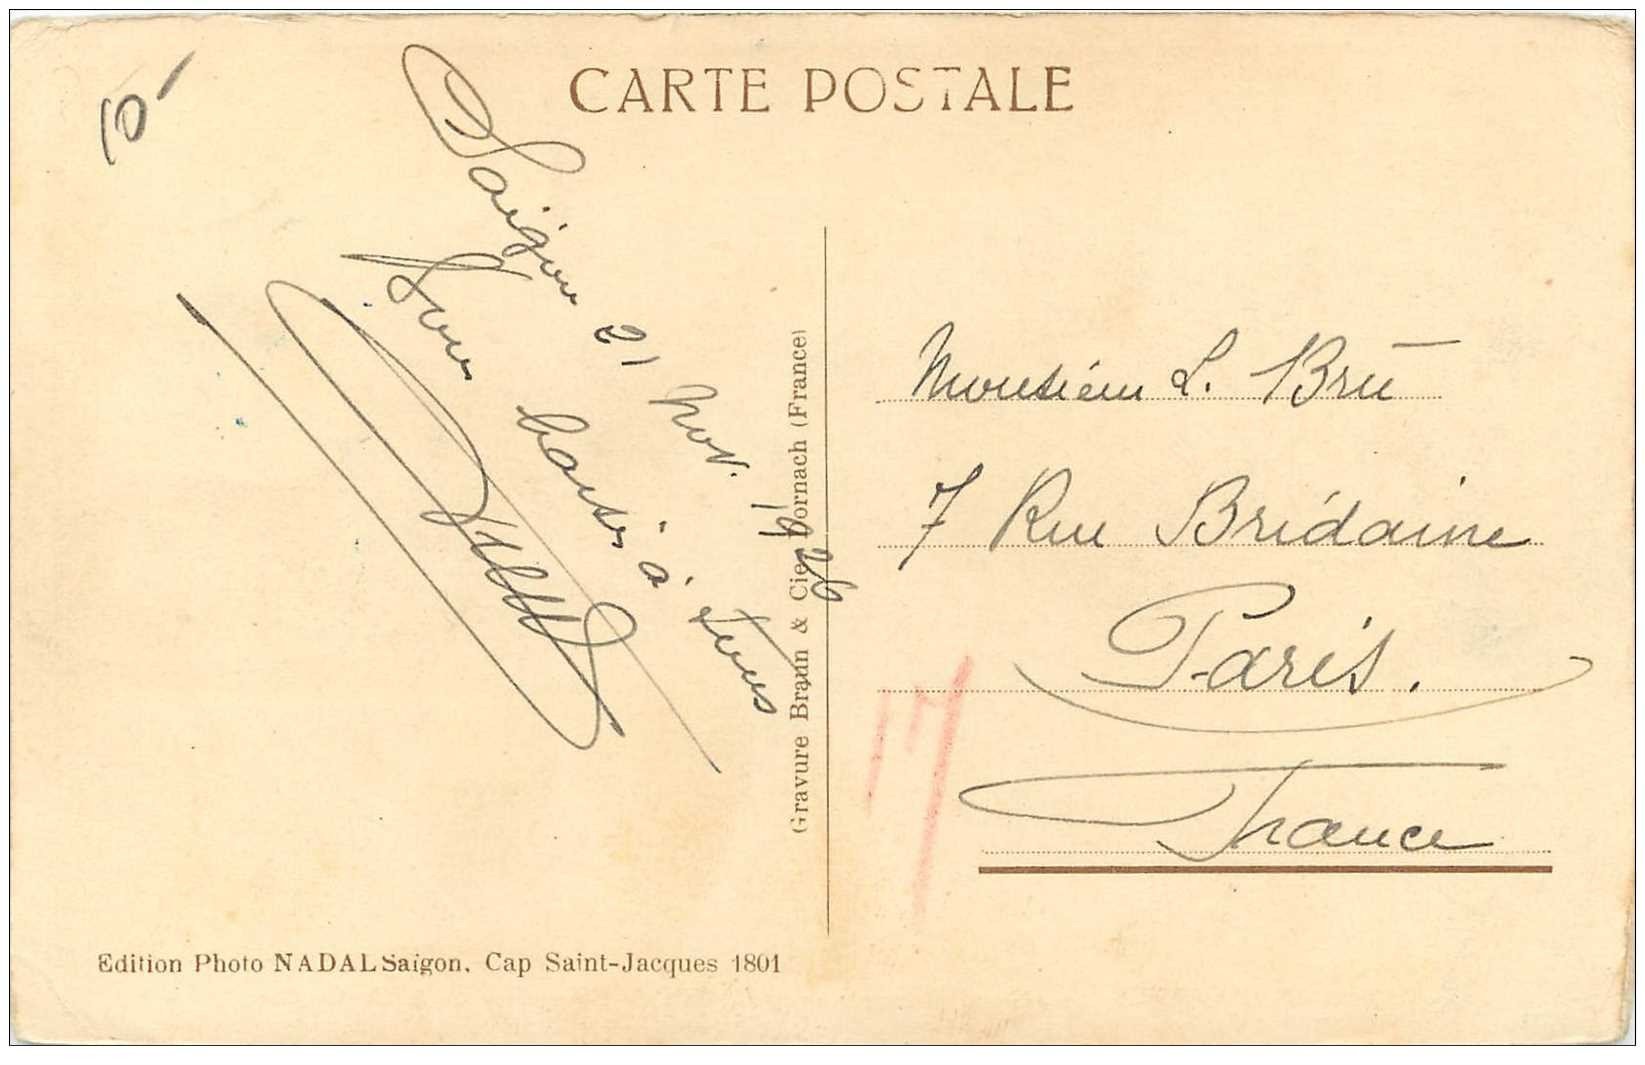 CARTE POSTALE
10-
Saigon 21 Nov. 1926
Bons baisers à tous
Monsieur L. Brû
7 Rue Bridaine
Paris.
France
17
Gravure Braun & Cie Dornach (France)
Edition Photo NADAL Saigon, Cap Saint-Jacques 1801